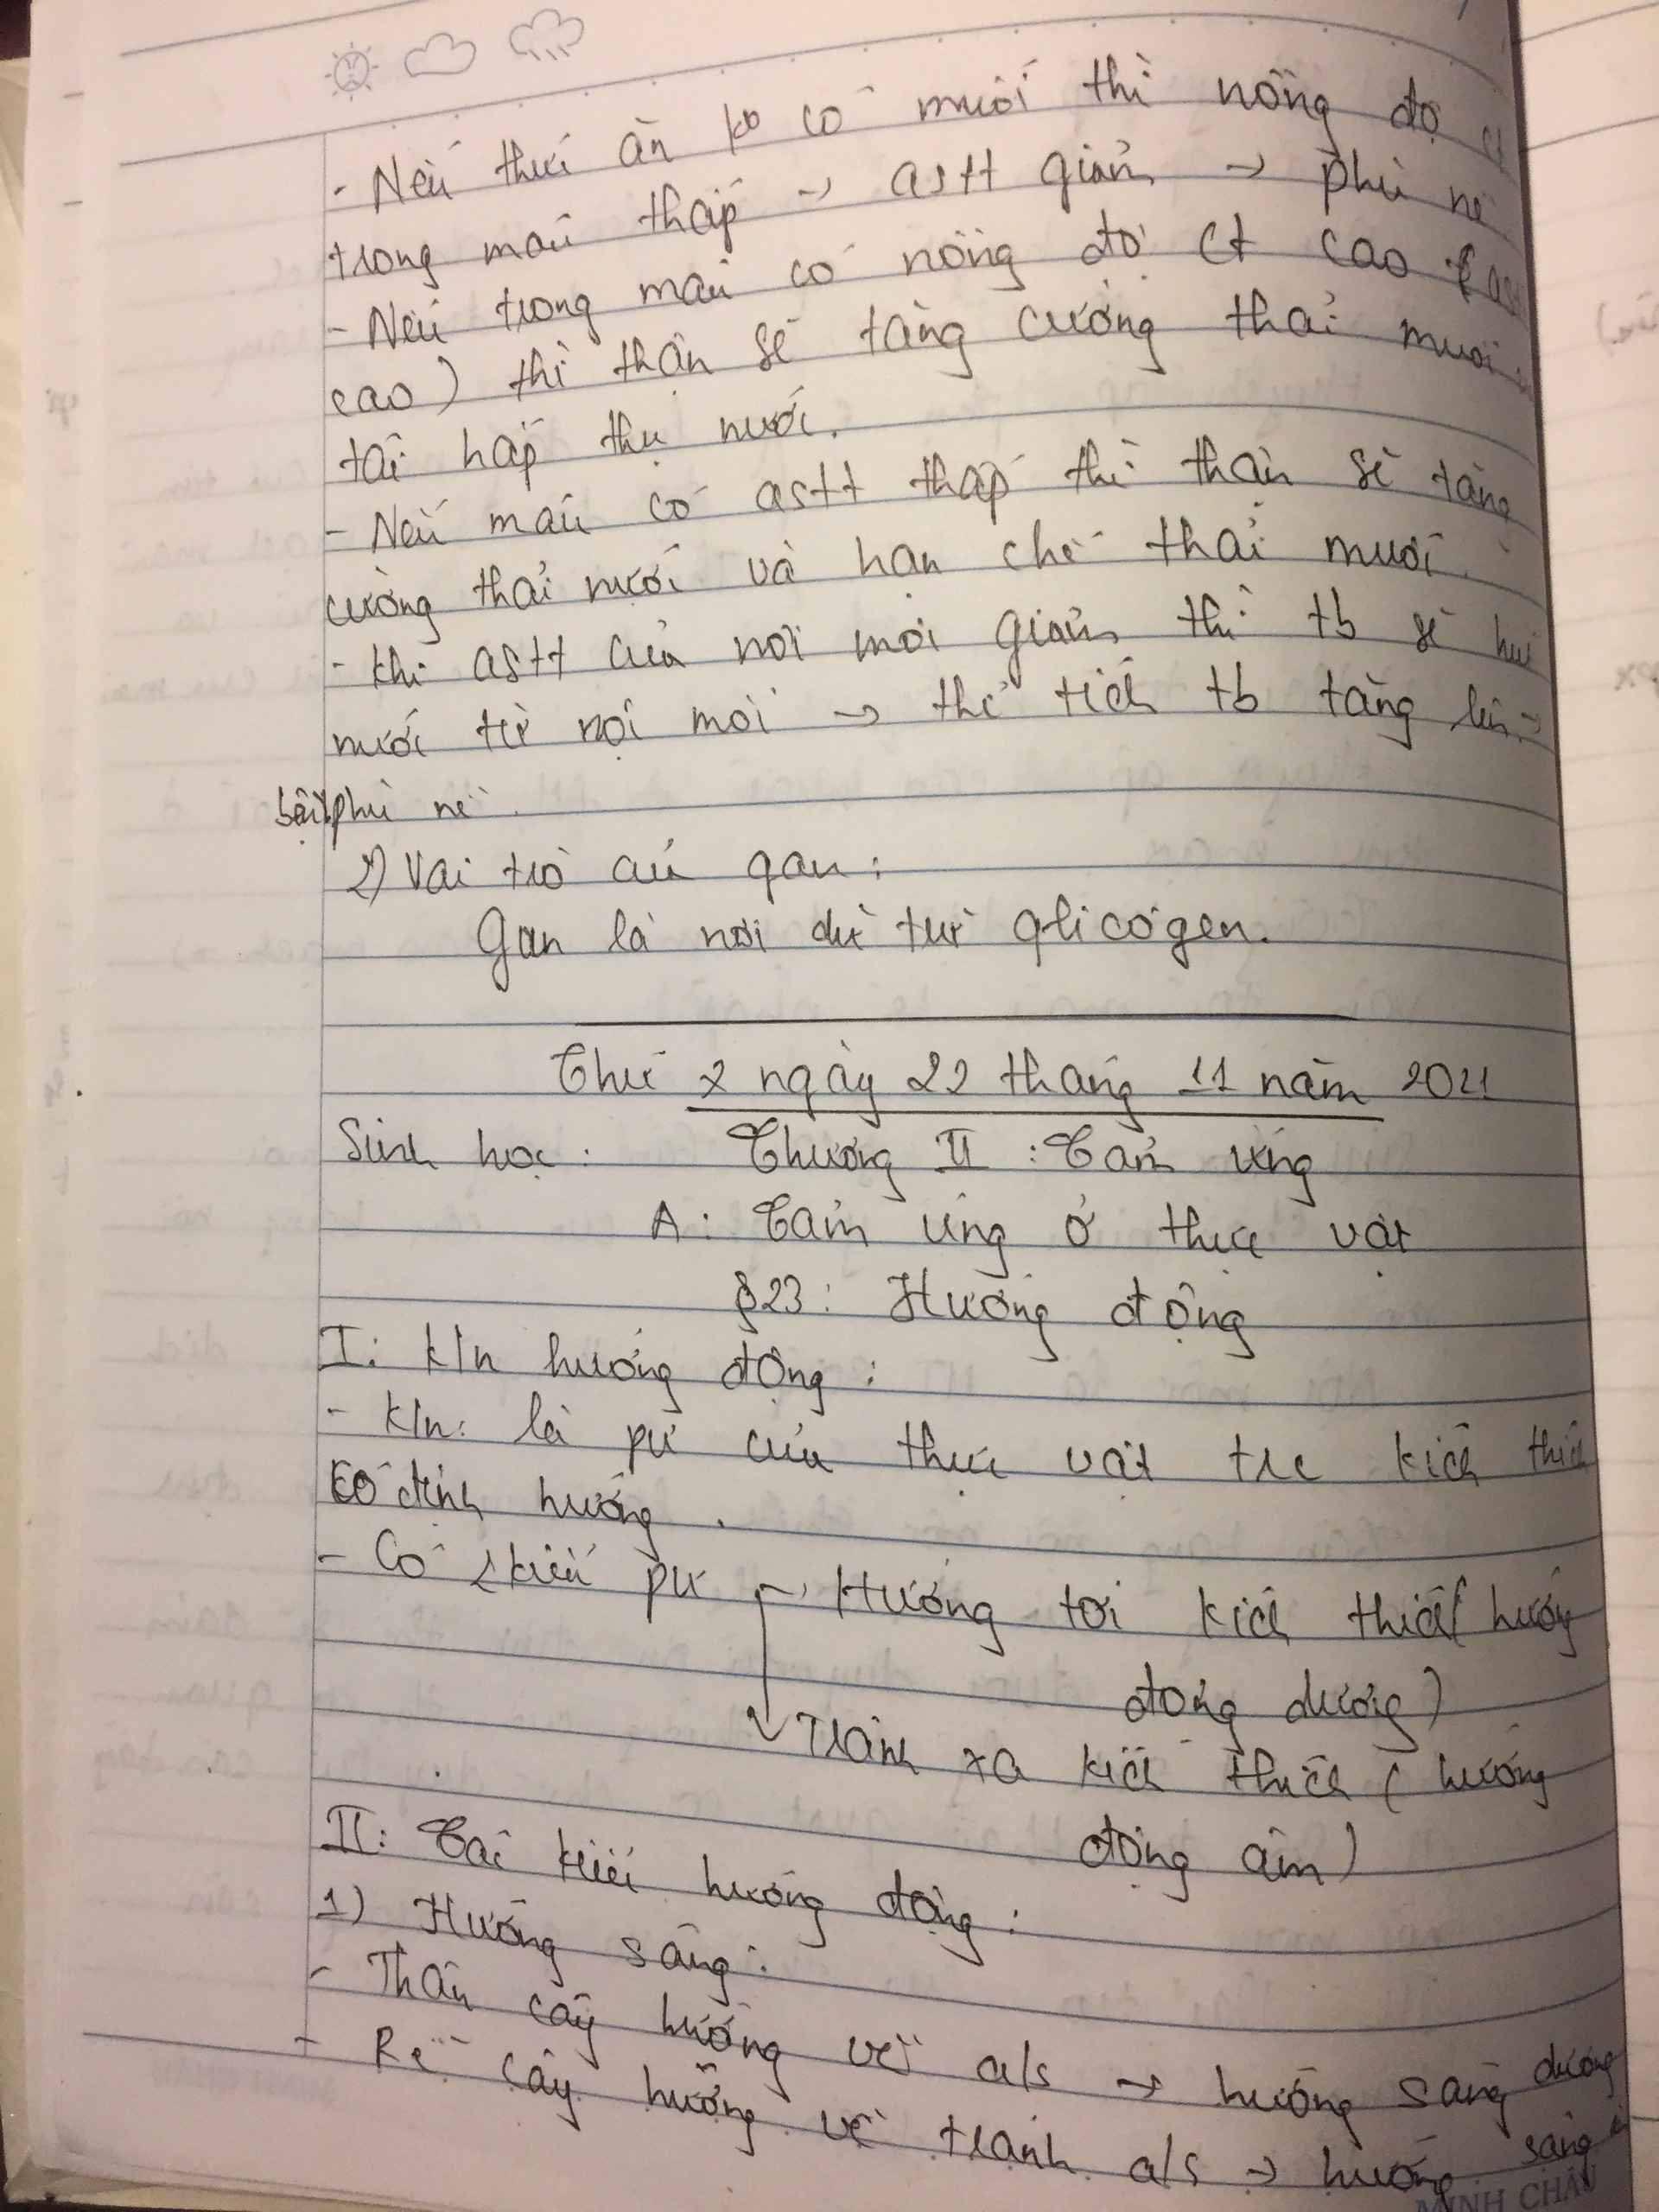 - Nếu thức ăn ko có muối thì nồng độ ct
trong máu thấp → astt giảm → phù nề
- Nếu trong máu có nồng độ ct cao (astt
cao) thì thận sẽ tăng cường thải muối
tái hấp thụ nước.
- Nếu máu có astt thấp thì thận sẽ tăng
cường thải nước và hạn chế thải muối.
- khi astt của nội môi giảm thì tb sẽ hút
nước từ nội môi → thể tích tb tăng lên →
phù nề.
2) Vai trò của gan:
Gan là nơi dự trữ glicôgen.
Thứ 2 ngày 22 tháng 11 năm 2021
Sinh học: Chương II: Cảm ứng
A: Cảm ứng ở thực vật
§23: Hướng động
I: k/n hướng động:
- k/n: là pứ của thực vật trc kích thích
có định hướng.
- Có 2 kiểu pứ → Hướng tới kích thích (hướng
động dương)
→ Tránh xa kích thích (hướng
động âm)
II: Các kiểu hướng động:
1) Hướng sáng:
- Thân cây hướng về a/s → hướng sáng dương
- Rễ cây hướng về tránh a/s → hướng sáng
MINH CHÂU